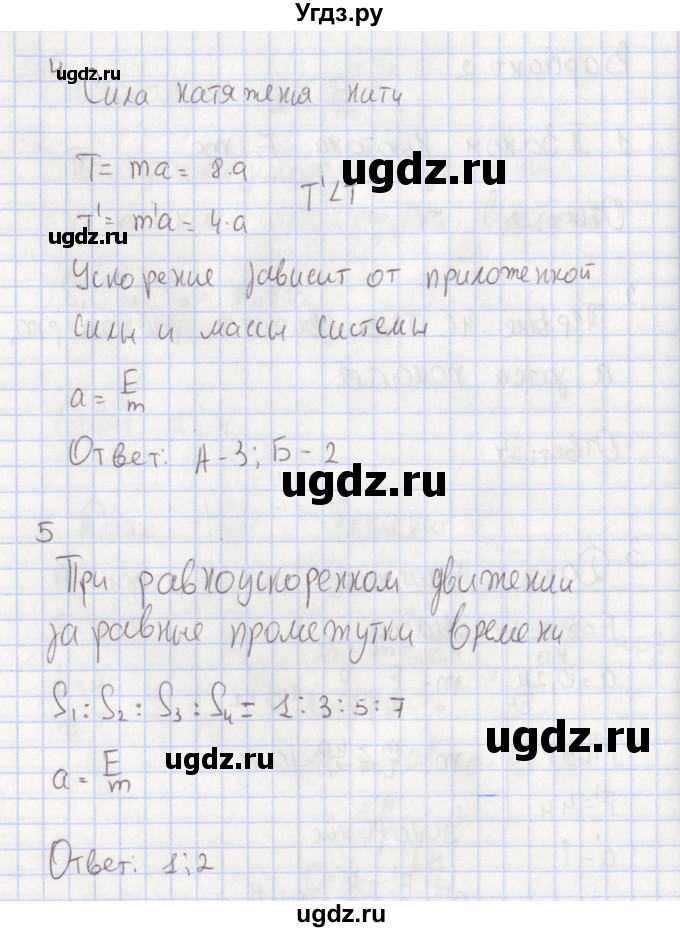 Угдз.ру
4
ugdz.ru
Сила натяжения нити
T = ma = 8·a
ugdz.ru
T' < T
T' = m'a = 4·a
ugdz.ru
Ускорение зависит от приложенной
силы и массы системы
a = E/m
Ответ: А-3; Б-2
ugdz.ru
5
При равноускоренном движении
за равные промежутки времени
S₁ : S₂ : S₃ : S₄ = 1 : 3 : 5 : 7
ugdz.ru
a = E/m
ugdz.ru
Ответ: 1;2
ugdz.ru
ugdz.ru